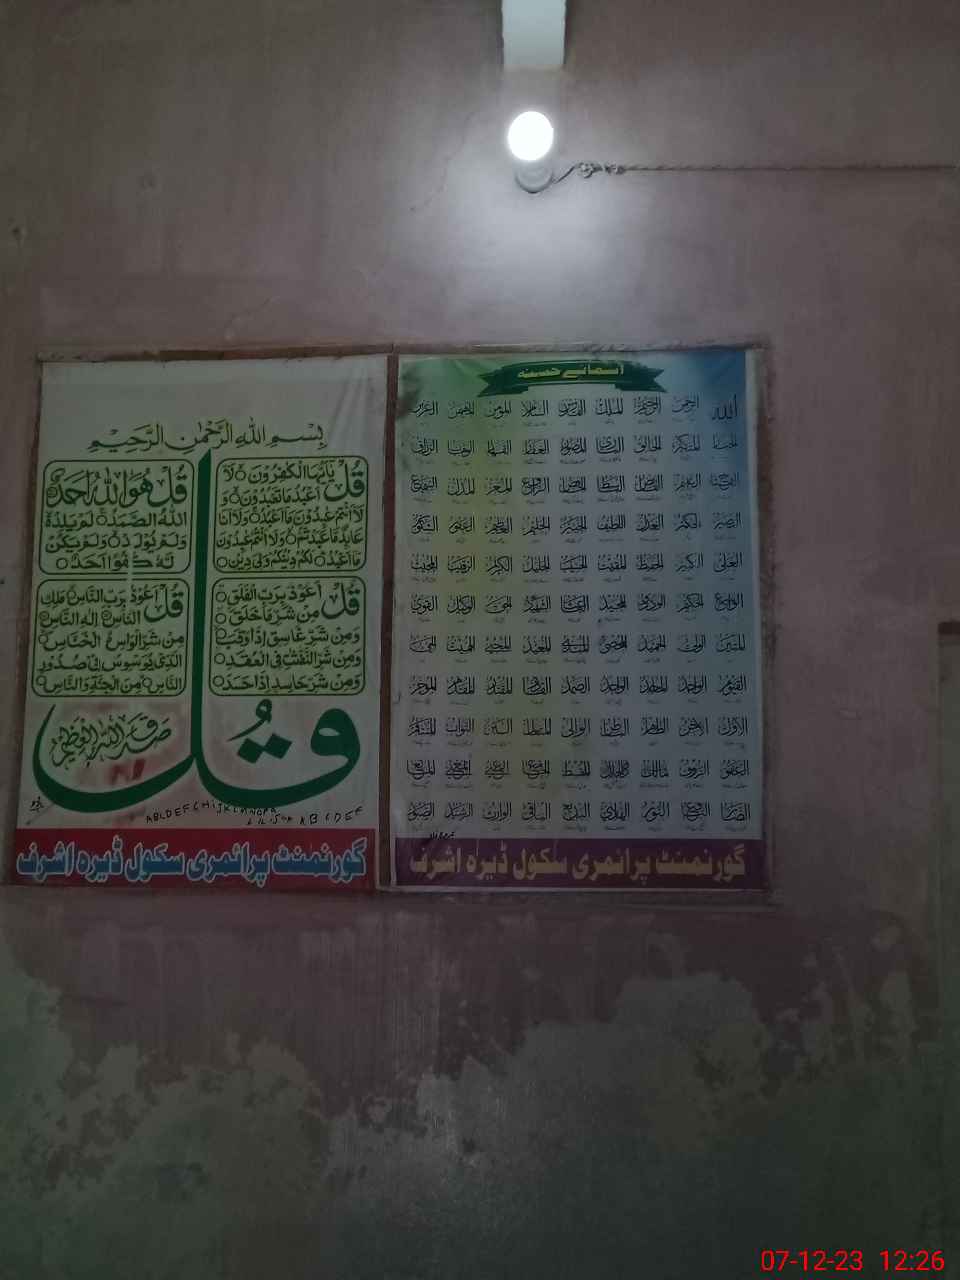 بِسْمِ اللهِ الرَّحْمٰنِ الرَّحِيْمِ
قُلْ يٰٓاَيُّهَا الْكٰفِرُوْنَ ۝ لَآ
اَعْبُدُ مَا تَعْبُدُوْنَ ۝ وَ
لَآ اَنْتُمْ عٰبِدُوْنَ مَآ اَعْبُدُ ۝ وَلَآ اَنَا
عَابِدٌ مَّا عَبَدْتُّمْ ۝ وَلَآ اَنْتُمْ عٰبِدُوْنَ
مَآ اَعْبُدُ ۝ لَكُمْ دِيْنُكُمْ وَلِيَ دِيْنِ ۝
قُلْ هُوَ اللهُ اَحَدٌ ۝
اَللهُ الصَّمَدُ ۝ لَمْ يَلِدْ ۝
وَلَمْ يُوْلَدْ ۝ وَلَمْ يَكُنْ
لَّهٗ كُفُوًا اَحَدٌ ۝
قُلْ اَعُوْذُ بِرَبِّ الْفَلَقِ ۝
مِنْ شَرِّ مَا خَلَقَ ۝
وَمِنْ شَرِّ غَاسِقٍ اِذَا وَقَبَ ۝
وَمِنْ شَرِّ النَّفّٰثٰتِ فِي الْعُقَدِ ۝
وَمِنْ شَرِّ حَاسِدٍ اِذَا حَسَدَ ۝
قُلْ اَعُوْذُ بِرَبِّ النَّاسِ ۝ مَلِكِ
النَّاسِ ۝ اِلٰهِ النَّاسِ ۝
مِنْ شَرِّ الْوَسْوَاسِ الْخَنَّاسِ ۝
الَّذِيْ يُوَسْوِسُ فِيْ صُدُوْرِ
النَّاسِ ۝ مِنَ الْجِنَّةِ وَالنَّاسِ ۝
قُل
صدق الله العظيم
گورنمنٹ پرائمری سکول ڈیرہ اشرف
اسمائے حسنہ
الله الرحمن الرحيم الملك القدوس السلام المؤمن المهيمن العزيز
الجبار المتكبر الخالق البارئ المصور الغفار القهار الوهاب الرزاق
الفتاح العليم القابض الباسط الخافض الرافع المعز المذل السميع
البصير الحكم العدل اللطيف الخبير الحليم العظيم الغفور الشكور
العلي الكبير الحفيظ المقيت الحسيب الجليل الكريم الرقيب المجيب
الواسع الحكيم الودود المجيد الباعث الشهيد الحق الوكيل القوي
المتين الولي الحميد المحصي المبدئ المعيد المحيي المميت الحي
القيوم الواجد الماجد الواحد الصمد القادر المقتدر المقدم المؤخر
الاول الاخر الظاهر الباطن الوالي المتعالي البر التواب المنتقم
العفو الرؤوف مالك الملك ذوالجلال المقسط الجامع الغني المغني المانع
الضار النافع النور الهادي البديع الباقي الوارث الرشيد الصبور
گورنمنٹ پرائمری سکول ڈیرہ اشرف
07-12-23 12:26